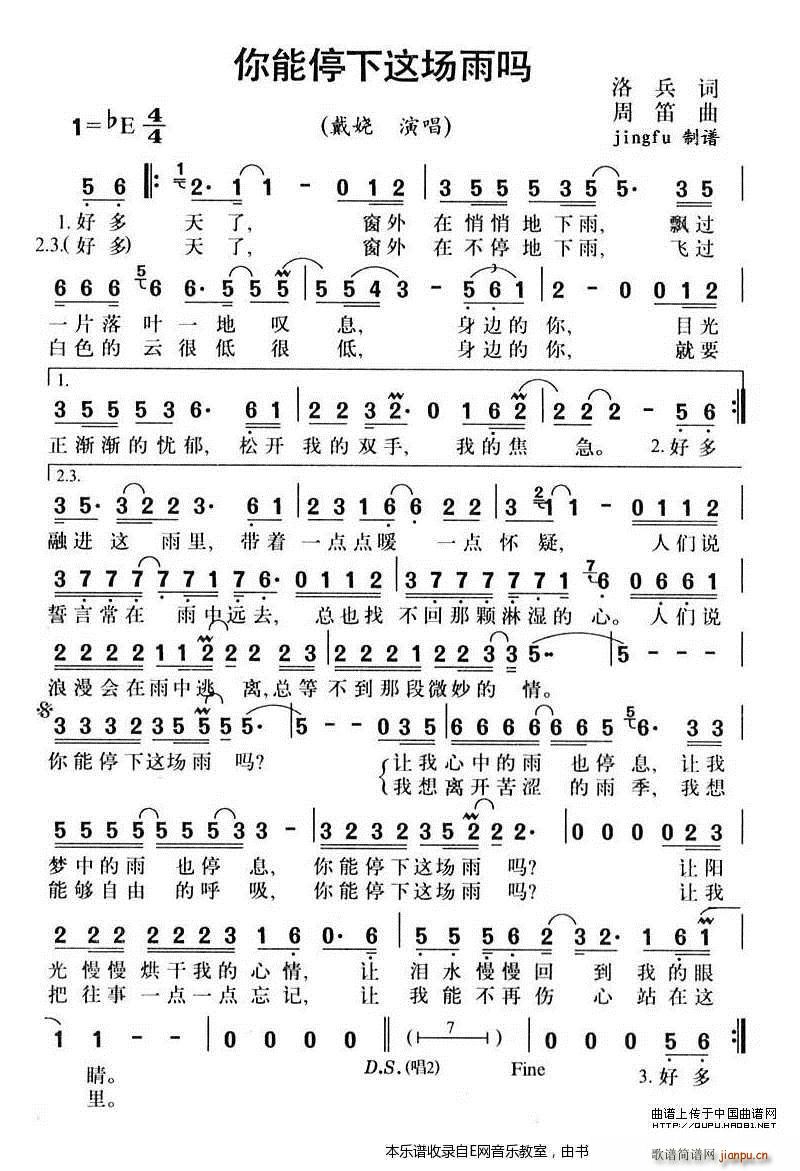 你能停下这场雨吗
洛兵 词
周笛 曲
1=♭E 4/4
(戴娆 演唱)
jingfu 制谱
5 6 ‖: 2· 1 1 - 0 1 2 | 3 5 5 5 5 3 5 5 - 3 5 |
1.好多 天了, 窗外 在悄悄地下雨, 飘过
2.3.(好多) 天了, 窗外 在不停地下雨, 飞过
6 6 6 6 6· 5 5 5 | 5 5 4 3 - 5 6 1 | 2 - 0 0 1 2 |
一片落叶一地 叹 息, 身边的你, 目光
白色的云很低 很 低, 身边的你, 就要
1.
3 5 5 5 3 6· 6 1 | 2 2 3 2· 0 1 6 2 | 2 - - 5 6 :‖
正渐渐的忧郁, 松开 我的双手, 我的焦 急。 2.好多
2.3.
3 5· 3 2 2 3· 6 1 | 2 3 1 6 6 2 2 1 2 | 3 1 1 - 0 1 1 2 |
融进 这 雨里, 带着 一点点暖 一点 怀疑, 人们说
3 7 7 7 7 7 1 7 6· 0 1 1 2 | 3 7 7 7 7 7 7 1 1 6 0 6 6 1 |
誓言常在 雨中远去, 总也找 不回那颗淋湿的心。人们说
2 2 2 2 1 1 2 2 2 2 3 | 2 2 2 1 2 2 3 3 5·· | 5 - - - |
浪漫会在雨中逃 离,总等 不到那段微妙的 情。
3 3 3 2 3 5 5 5 5 5· | 5 - 0 3 5 | 6 6 6 6 6 6 6 5 6· 3 3 |
你能停下这场雨 吗? 让我 心中的雨 也停息, 让我
我想 离开苦涩 的雨季, 我想
5 5 5 5 5 5 5 3 3 - | 3 2 3 2 3 5 2 2 2· | 0 0 0 0 2 3 |
梦中的雨 也停 息, 你能停下这场雨 吗? 让阳
能够自由 的呼 吸, 你能停下这场雨 吗? 让我
2 2 2 2 2 2 3 1 6 0· 6 | 5 5 5 5 2 2 3 2· 2 6 1 |
光 慢慢 烘干我的 心情, 让 泪水 慢慢 回 到 我的眼
把 往事 一点一点 忘记, 让 我能 不再 伤 心 站在这
1 1 - - | 0 0 0 0 ‖ ( 7 ) | 0 0 0 5 6 :‖
D.S.(唱2) Fine
睛。 3.好多
里。
曲谱上传于中国曲谱网
HTTP://QUPU.HAO81.NET
本乐谱收录自E网音乐教室，由书
歌谱简谱网 jianpu.cn